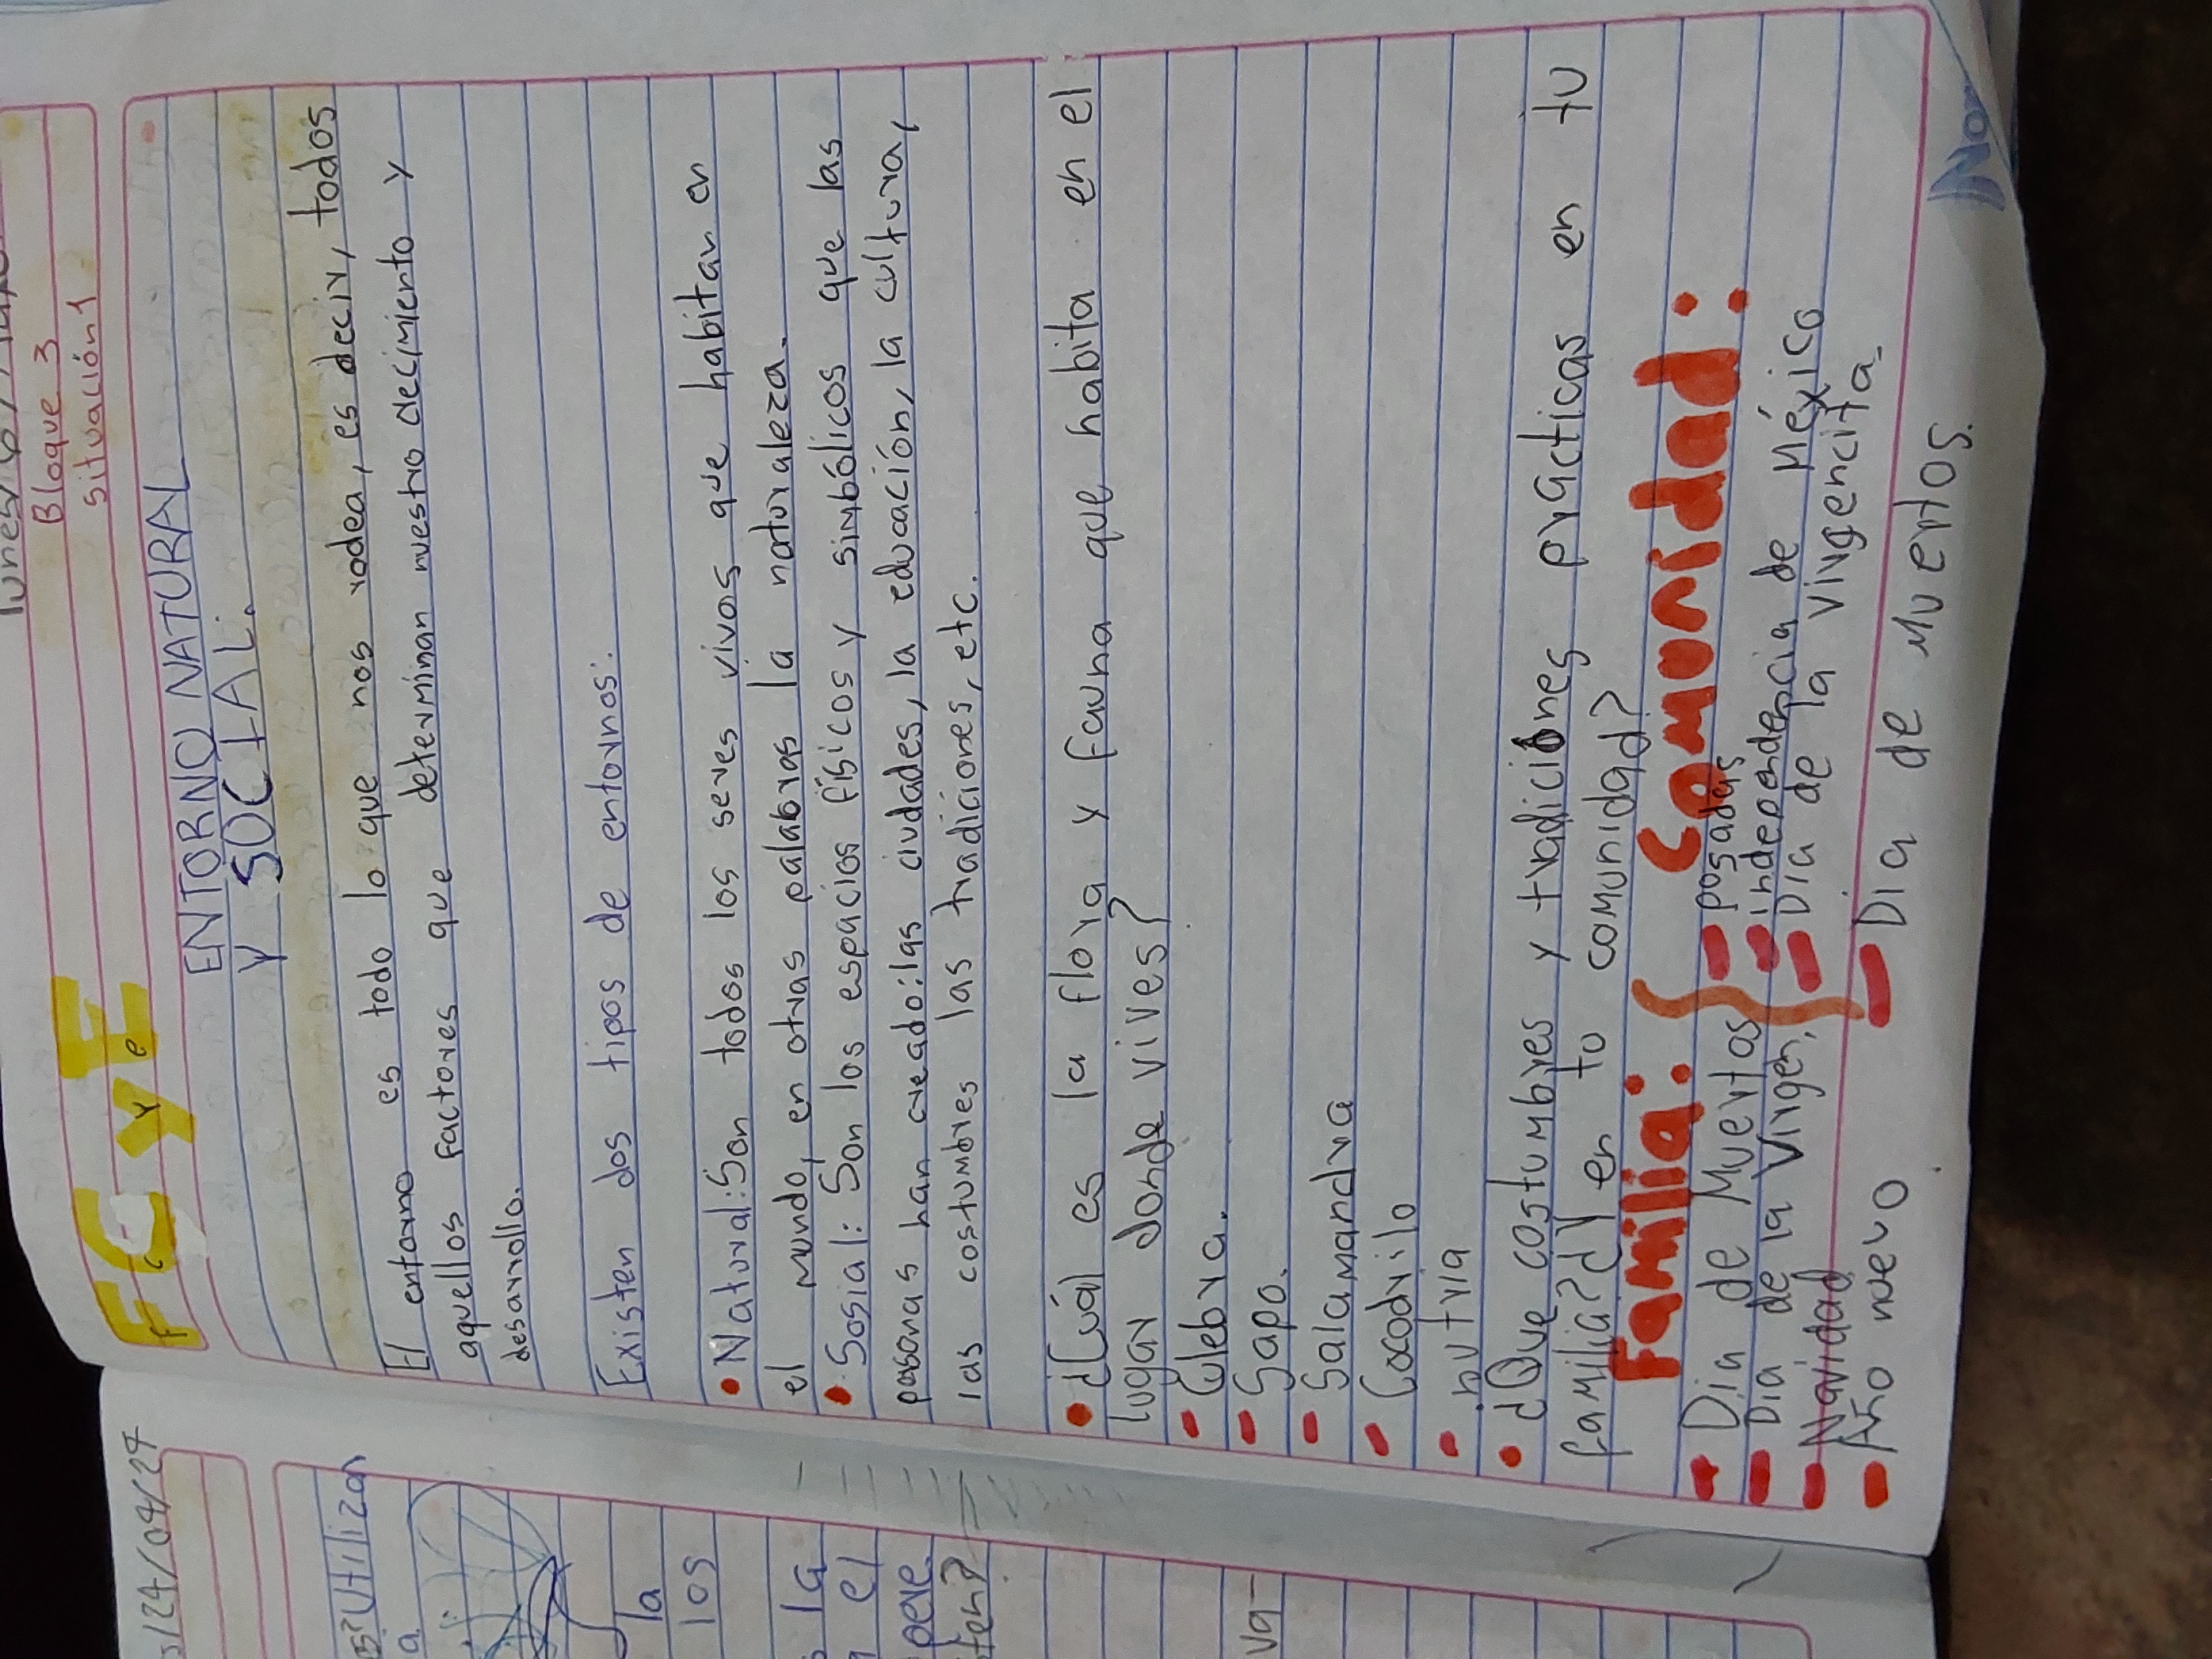 Bloque 3
situación1
FCyE
F C y E
ENTORNO NATURAL
Y SOCIAL.
El entorno es todo lo que nos rodea, es decir, todos
aquellos factores que determinan nuestro decimiento y
desarrollo.
Existen dos tipos de entornos:
• Natural: Son todos los seres vivos que habitan en
el mundo, en otras palabras la naturaleza.
• Sosial: Son los espacios físicos y simbólicos que las
personas han creado: las ciudades, la educación, la cultura,
las costumbres las tradiciones, etc.
• ¿Cuál es la flora y fauna que habita en el
lugar donde vives?
- Culebra.
- Sapo.
- Salamandra
- Cocodrilo
- nutria
• ¿Que costumbres y tradiciones practicas en tu
familia? ¿Y en tu comunidad?
Familia: Comunidad:
- Dia de Muertos
- Dia de la Virgen,
- Navidad
- Año nuevo
- posadas
- independencia de México
- Dia de la virgencita
- Dia de Muertos.
/24/04/24
Utilizan
a
la
los
la
el